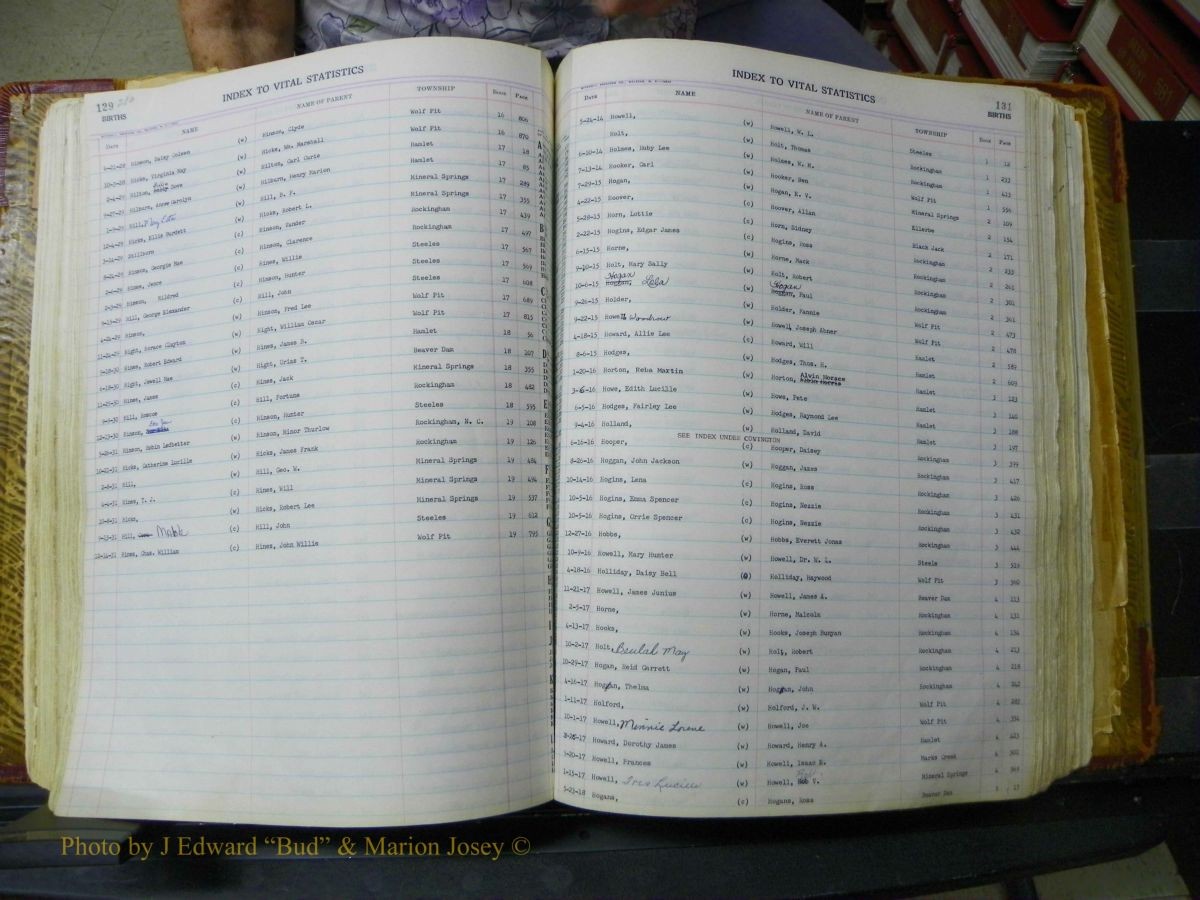 129
INDEX TO VITAL STATISTICS
BIRTHS
Date NAME NAME OF PARENT TOWNSHIP BOOK PAGE
Hinson, Daisy Coleen (w) Hinson, Clyde Wolf Pit 16 806
Hicks, Virginia May (w) Hicks, Wm. Marshall Wolf Pit 16 870
Hilton, Dove (w) Hilton, Carl Curte Hamlet 17 18
Hilburn, Annie Carolyn (w) Hilburn, Henry Marion Hamlet 17 85
Hill, (w) Hill, B. F. Mineral Springs 17 289
Hicks, Ellis Burdett (w) Hicks, Robert L. Mineral Springs 17 355
Stillborn (c) Hinson, Vander Rockingham 17 439
Hinson, Georgia Mae (c) Hinson, Clarence Rockingham 17 497
Hines, Jesse (c) Hines, Willie Steeles 17 567
Hinson, Mildred (c) Hinson, Hunter Steeles 17 569
Hill, George Alexander (c) Hill, John Steeles 17 608
Hinson, (w) Hinson, Fred Lee Wolf Pit 17 689
Hight, Horace Clayton (w) Hight, William Oscar Wolf Pit 17 815
Hines, Robert Edward (w) Hines, James B. Hamlet 18 56
Hight, Jewell Rae (w) Hight, Urias T. Beaver Dam 18 207
Hines, James (c) Hines, Jack Mineral Springs 18 355
Hill, Roscoe (c) Hill, Fortune Rockingham 18 482
Hinson, (c) Hinson, Hunter Steeles 18 595
Hinson, Robin Ledbetter (w) Hinson, Minor Thurlow Rockingham, N. C. 19 108
Hicks, Catherine Lucille (w) Hicks, James Frank Rockingham 19 126
2-8-31 Hill, (w) Hill, Geo. W. Mineral Springs 19 484
Hines, T. J. (c) Hines, Will Mineral Springs 19 494
10-8-31 Hicks, (w) Hicks, Robert Lee Mineral Springs 19 537
9-13-31 Hill, Mable (c) Hill, John Steeles 19 612
12-14-31 Hines, Chas. William (c) Hines, John Willie Wolf Pit 19 795
INDEX TO VITAL STATISTICS
131
BIRTHS
Date NAME NAME OF PARENT TOWNSHIP BOOK PAGE
5-24-14 Howell, (w) Howell, W. L. Steeles 1 12
Holt, (w) Holt, Thomas Rockingham 1 233
6-10-14 Holmes, Ruby Lee (w) Holmes, W. H. Rockingham 1 413
7-13-14 Hooker, Carl (w) Hooker, Ben Wolf Pit 1 556
7-29-15 Hogan, (w) Hogan, K. V. Mineral Springs 2 109
4-22-15 Hoover, (c) Hoover, Allan Ellerbe 2 154
5-28-15 Horn, Lottie (c) Horn, Sidney Black Jack 2 171
2-22-15 Hogins, Edgar James (c) Hogins, Ross Rockingham 2 233
6-15-15 Horne, (w) Horne, Mack Rockingham 2 265
9-10-15 Holt, Mary Sally (w) Holt, Robert Rockingham 2 301
10-6-15 Hogan Lela (w) Hogan, Paul Rockingham 2 361
9-26-15 Holder, (w) Holder, Fannie Wolf Pit 2 473
9-22-15 Howell Woodrow (w) Howell Joseph Abner Wolf Pit 2 478
4-18-15 Howard, Allie Lee (w) Howard, Will Hamlet 2 589
8-6-15 Hodges, (w) Hodges, Thos. H. Hamlet 2 609
1-20-16 Horton, Reba Martin (w) Horton, Alvin Horace Hamlet 3 123
3-6-16 Howe, Edith Lucille (w) Howe, Pete Hamlet 3 146
6-5-16 Hodges, Fairley Lee (w) Hodges, Raymond Lee Hamlet 3 188
9-4-16 Holland, (w) Holland, David Hamlet 3 197
SEE INDEX UNDER COVINGTON
6-16-16 Hooper, (c) Hooper, Daisey Rockingham 3 399
8-26-16 Hoggan, John Jackson (w) Hoggan, James Rockingham 3 417
10-14-16 Hogins, Lena (c) Hogins, Ross Rockingham 3 426
10-5-16 Hogins, Emma Spencer (c) Hogins, Nezzie Rockingham 3 431
10-5-16 Hogins, Orrie Spencer (c) Hogins, Nezzie Rockingham 3 432
12-27-16 Hobbs, (w) Hobbs, Everett Jonas Rockingham 3 444
10-9-16 Howell, Mary Hunter (w) Howell, Dr. W. L. Steels 3 519
4-18-16 Holliday, Daisy Bell Holliday, Haywood Wolf Pit 3
11-21-17 Howell, James Junius (w) Howell, James A. Beaver Dam 4 113
2-5-17 Horne, (w) Horne, Malcolm Rockingham 4 131
4-13-17 Hooks, (w) Hooks, Joseph Bunyan Rockingham 4 136
10-2-17 Holt, Beulah May (w) Holt, Robert Rockingham 4 213
10-29-17 Hogan, Reid Garrett (w) Hogan, Paul Rockingham 4 218
4-16-17 Hogan, Thelma (w) Hogan, John Rockingham 4 242
1-11-17 Holford, (w) Holford, J. W. Wolf Pit 4 282
10-1-17 Howell, Minnie Lorene (w) Howell, Joe Wolf Pit 4 334
Howard, Dorothy James (w) Howard, Henry A. Hamlet 4 423
1-20-17 Howell, Frances (w) Howell, Isaac E. Marks Creek 4 502
1-15-17 Howell, Iris Lucille (w) Howell, V. Mineral Springs 4
5-23-18 Hogans, (c) Hogans, Ross Beaver Dam
Photo by J Edward “Bud” & Marion Josey ©